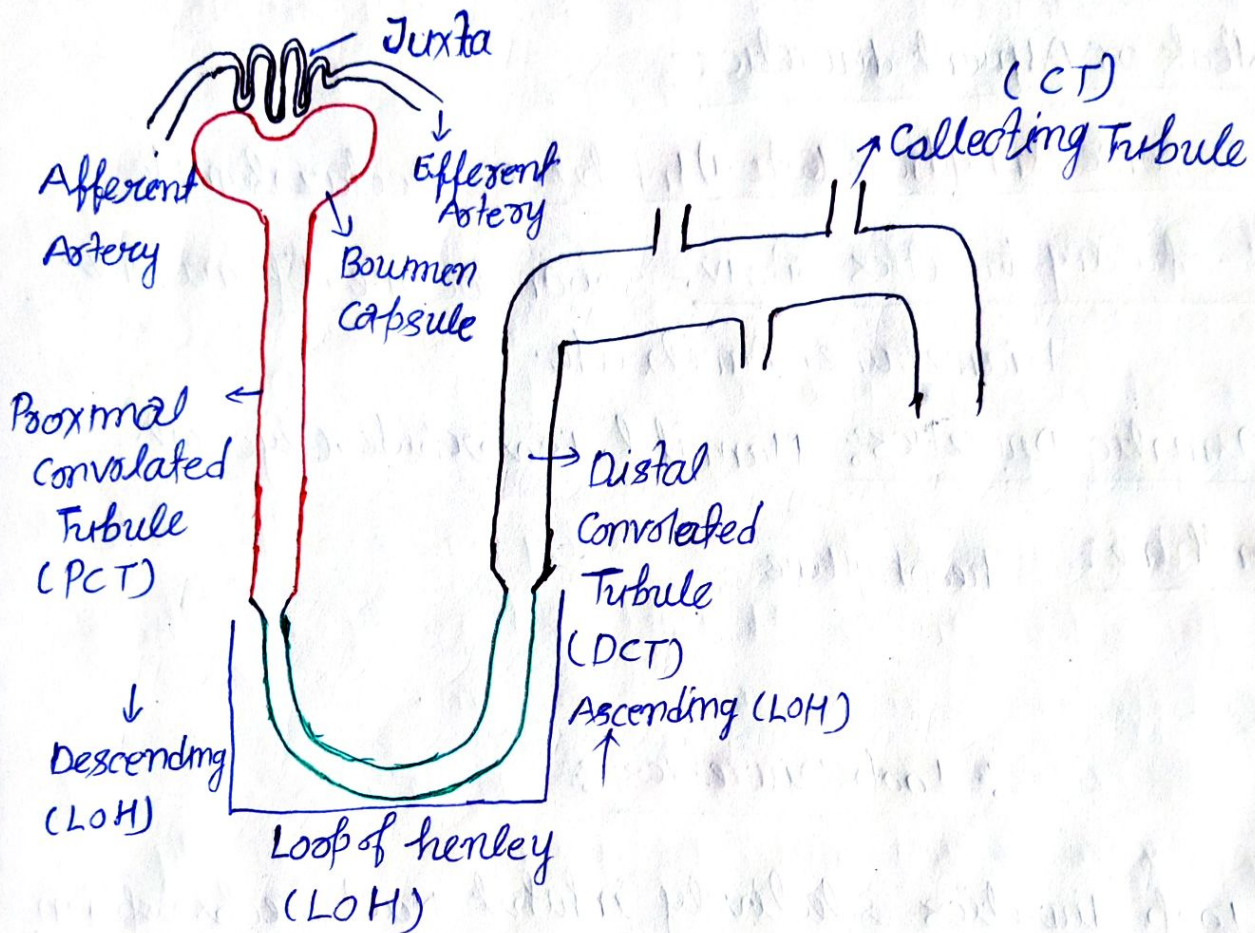 Juxta
(CT)
Collecting Turbule
Afferent
Artery
Efferent
Artery
Boumen
Capsule
Proxmal
Convolated
Turbule
(PCT)
Distal
Convolated
Turbule
(DCT)
Ascending (LOH)
Descending
(LOH)
Loop of henley
(LOH)